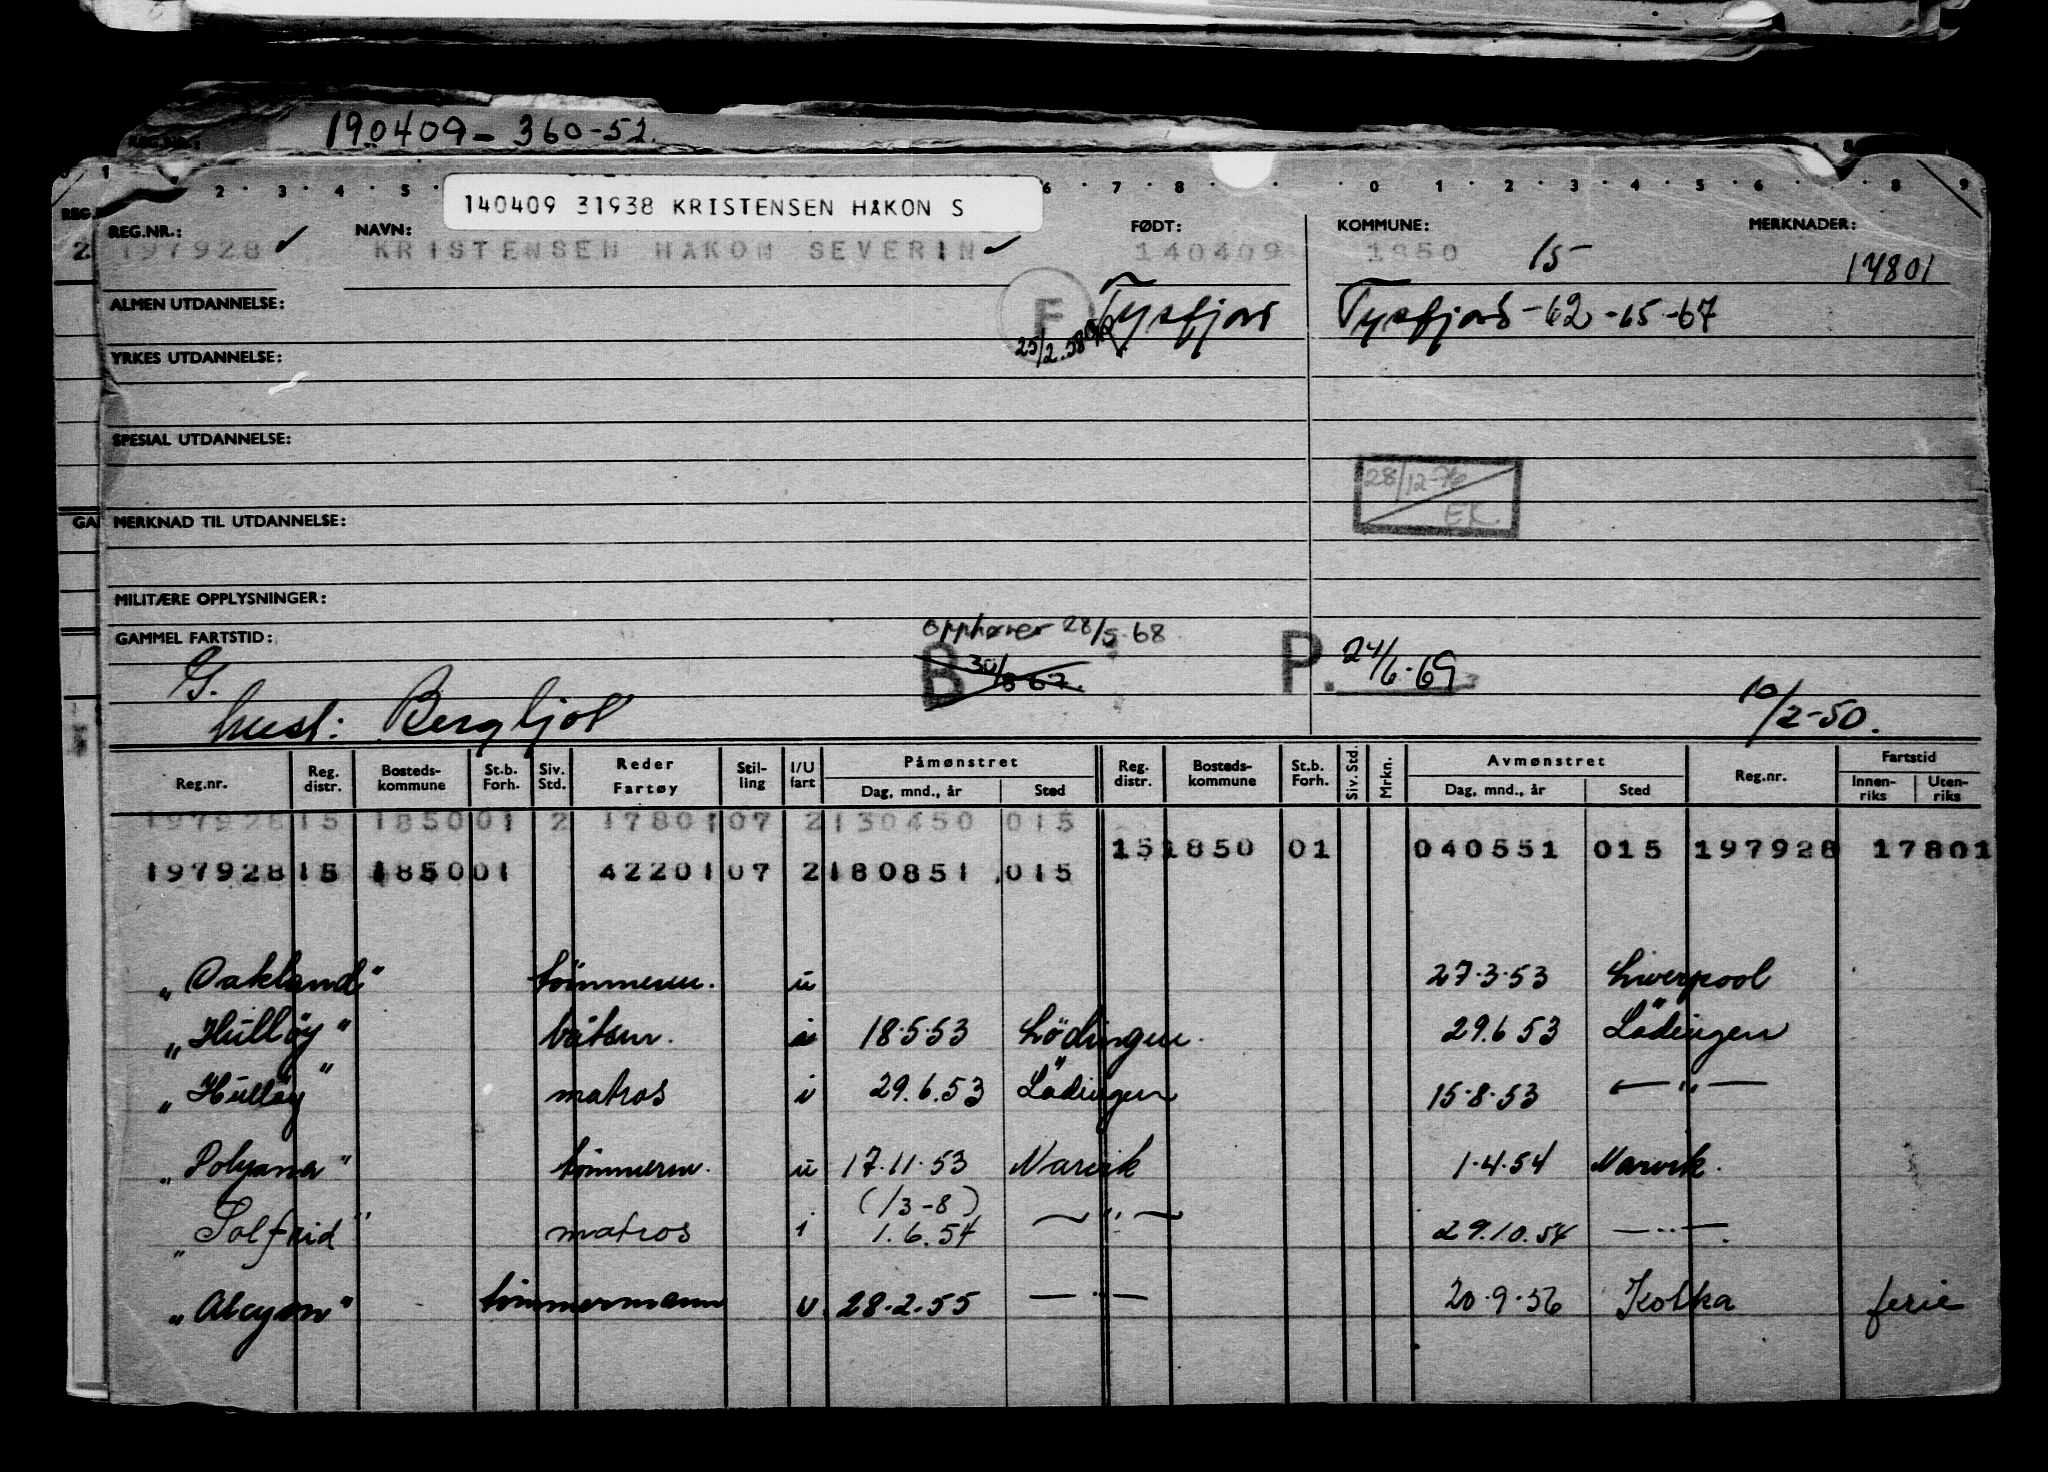 190409-360-52.
1 2 3 4 5 6 7 8 0 1 2 3 4 5 6 8 9
140409 31938 KRISTENSEN HÅKON S
REG.NR.: NAVN: FØDT: KOMMUNE: MERKNADER:
197928 ✓ KRISTENSEN HÅKON SEVERIN ✓ 140409 1850 15 14801
ALMEN UTDANNELSE: F Tysfjord Tysfjord-62-65-67
25/2.58
YRKES UTDANNELSE:
SPESIAL UTDANNELSE:
28/12-76
EK.
MERKNAD TIL UTDANNELSE:
MILITÆRE OPPLYSNINGER:
GAMMEL FARTSTID: Opphører 28/5-68
G. B P. 24/6-69
hust: Bergljot 10/2-50.
Reg.nr. Reg. distr. Bosteds-kommune St.b. Forh. Siv. Std. Reder Fartøy Stil-ling I/U fart Påmønstret Dag, mnd., år Sted Reg. distr. Bosteds-kommune St.b. Forh. Siv. Std. Mrkn. Avmønstret Dag, mnd., år Sted Reg.nr. Fartstid Innen-riks Uten-riks
197928 15 1850 01 2 17801 07 2 130450 015
15 1850 01 040551 015 197928 17801
197928 15 1850 01 42201 07 2 180851 015
"Oakland" tömmerm. u 27.3.53 Liverpool
"Hullöy" båtsm. i 18.5.53 Lödingen 29.6.53 Lödingen
"Hullöy" matros i 29.6.53 Lödingen 15.8.53 —"—
"Polyana" tömmerm. u 17.11.53 Narvik 1.4.54 Narvik.
(1/3-8)
"Solfrid" matros i 1.6.54 —"— 29.10.54 —"—
"Alcyon" tömmermann u 28.2.55 —"— 20.9.56 Kotka ferie